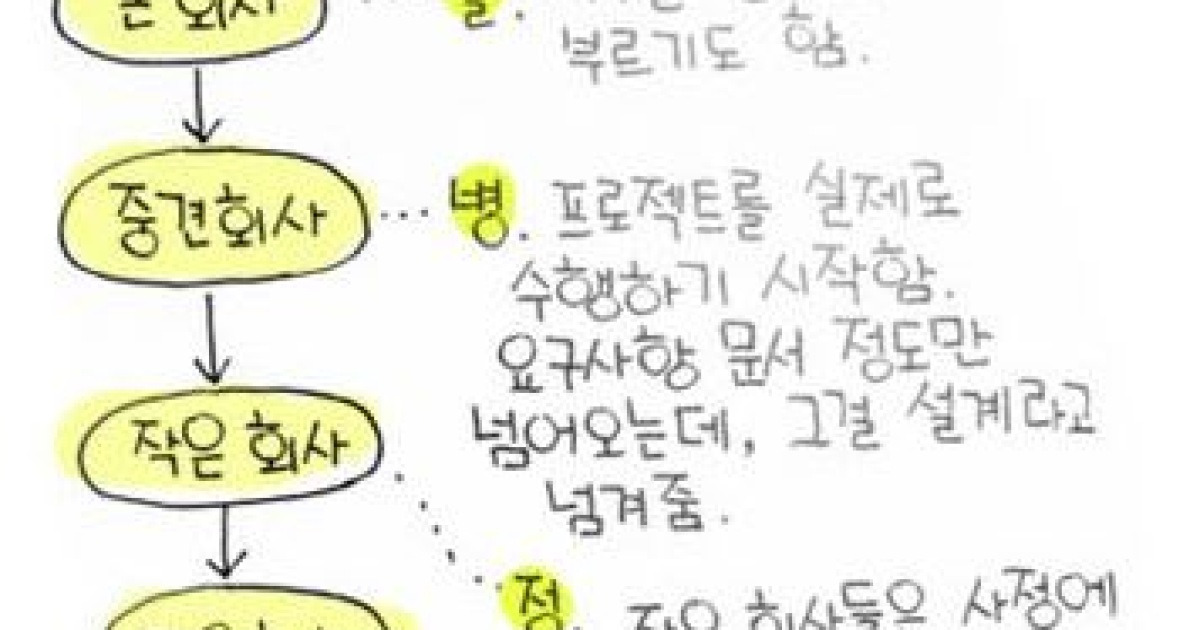 회사
부르기도 함.
중견회사 ... 병. 프로젝트를 실제로
수행하기 시작함.
요구사항 문서 정도만
작은 회사
넘어오는데, 그걸 설계라고
넘겨줌.
정. 작은 회사들은 사정에